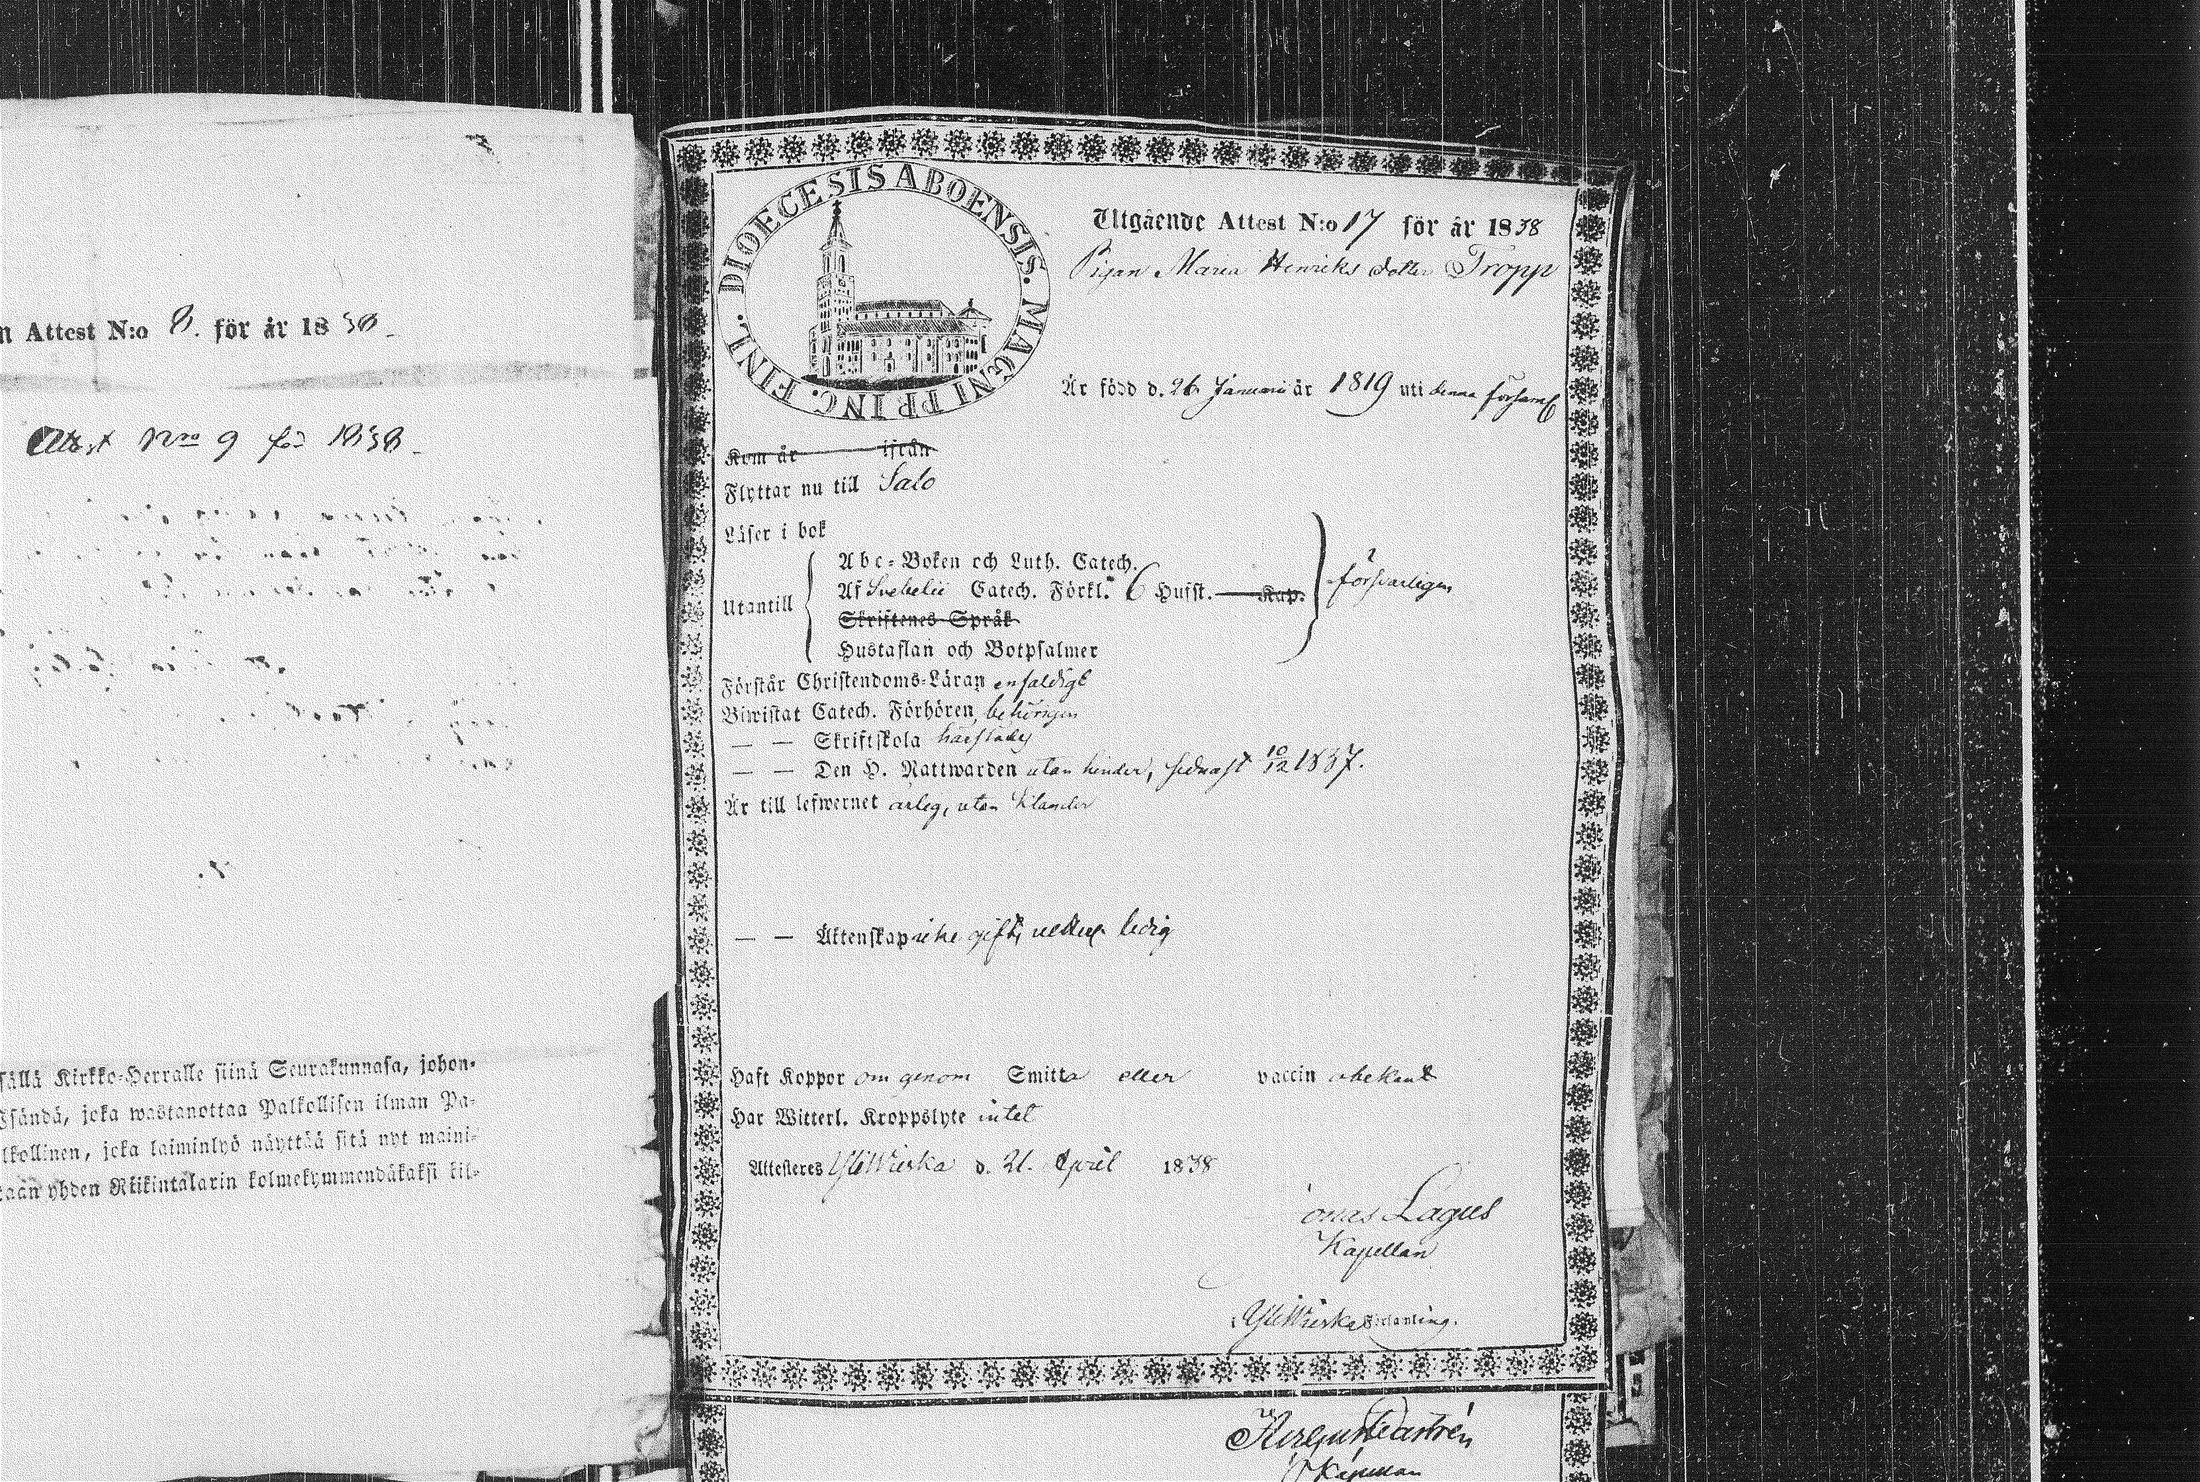 n Attest N:o 8. för år 1838
Attest Nro 9 för 1838
sällä Kirkko-Herralle siinä Seurakunnasa, johon-
Isändä, joka wastanottaa Palkollisen ilman Pa-
lkollinen, joka laiminlyö näyttää sitä nyt maini-
taan yhden Riikintalarin kolmekymmendäkaksi kil-
DIOECESIS ABOENSIS. MAGNI PRINC. FINL.
Utgående Attest N:o 17 för år 1838
Pigan Maria Henriks dotter Tropp
Är född d. 26 Januari år 1819 uti denna församl
Kom år ifrån
Flyttar nu till Salo
Läser i bok
Utantill
Abc-Boken och Luth. Catech.
Af Svebelii Catech. Förkl. 6 Hufst. Kap.
Skriftenes Språk
Hustaflan och Botpsalmer
försvarligen
Förstår Christendoms-Läran enfaldigt
Biwistat Catech. Förhören behörigen
— — Skriftskola
— — Den H. Nattwarden utan hinder, sednast 10/12 1837.
Är till lefwernet ärlig, utan klander
— — Äktenskap icke gift, utan ledig
Haft Koppor om genom Smitta eller vaccin obekant
Har Witterl. Kroppslyte intet
Attesteras YliWieska d. 21. April 1838
Jonas Lagus
Kapellan
i YliWieska Församling.
Kapellan